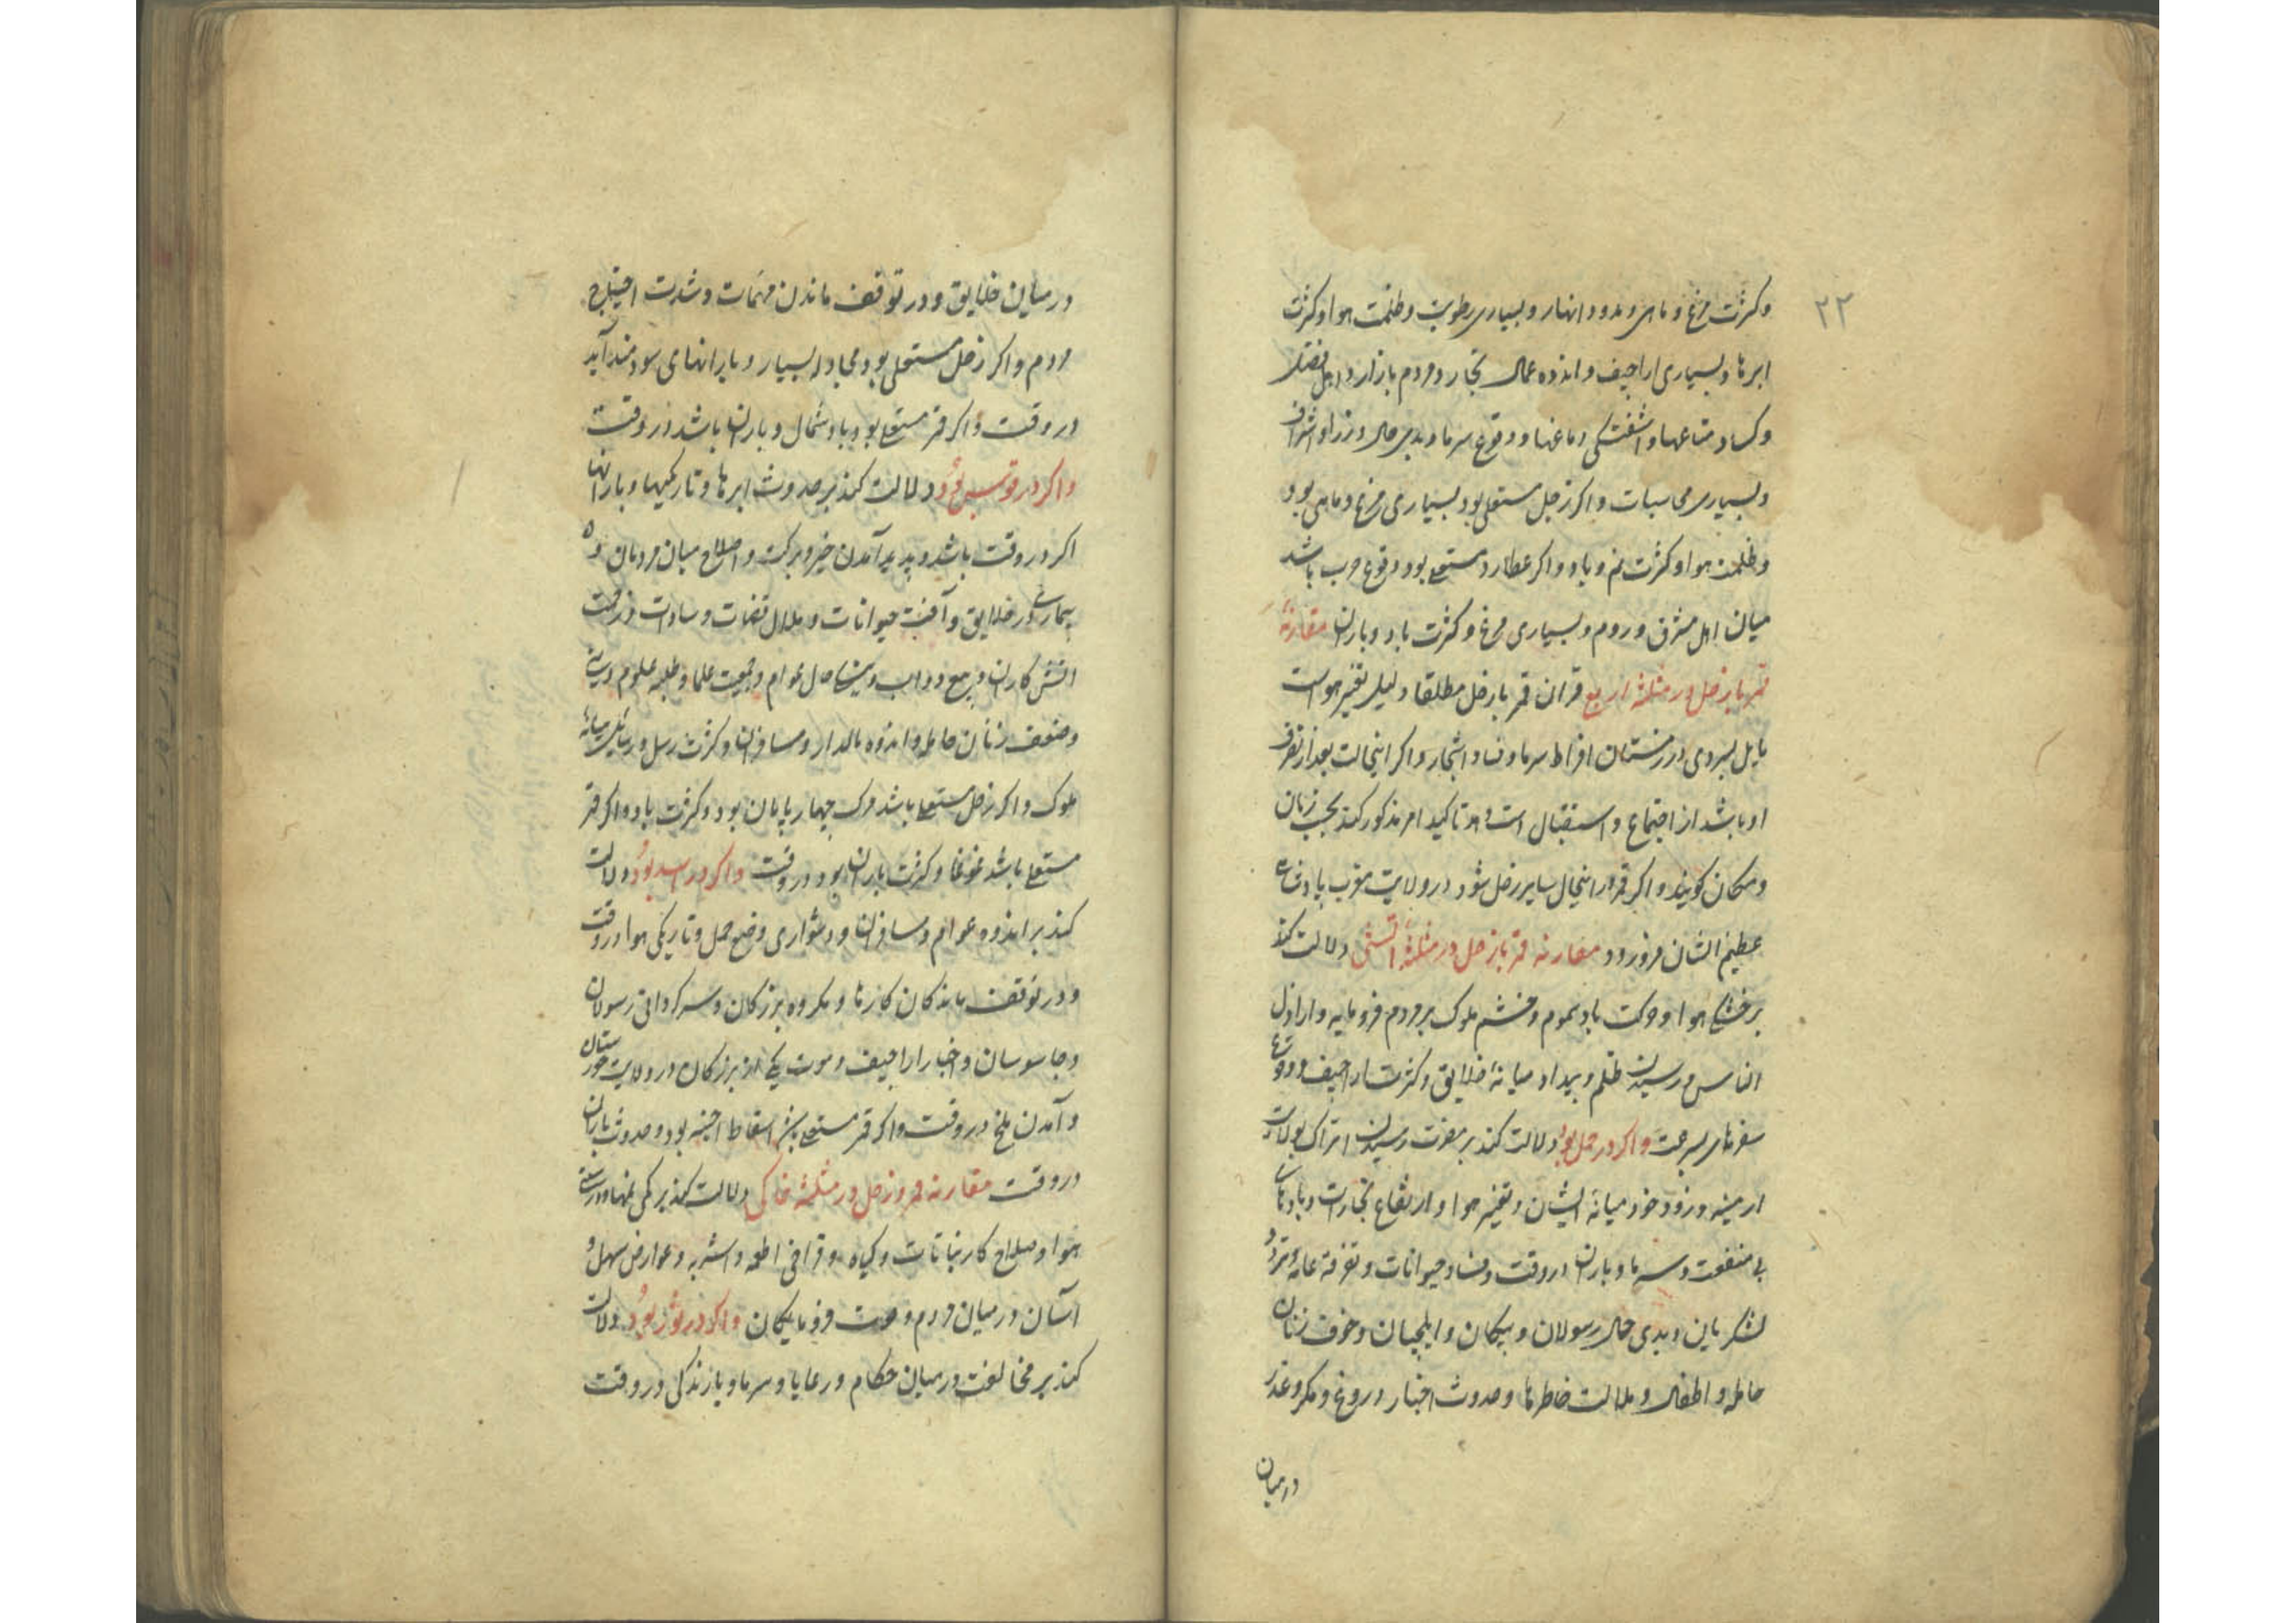 ۲۲
وکثرت مرغ و ماهی و مدود انهار و بسیاری رطوبت و ظلمت هوا و کثرت
ابرها و بسیاری اراجیف و اندوه عمال تجار و مردم بازار و اهل فضل
و کساد متاعها و اشفتگی دماغها و وقوع سرما و بدی حال وزرا و اشراف
و بسیاری محاسبات و اکر زحل مستعلی بود بسیاری مرغ و ماهی بود
و ظلمت هوا و کثرت نم و باد و اکر عطارد مستعلی بود وقوع حرب باشد
میان اهل مشرق و روم و بسیاری مرغ و کثرت باد و باران مقارنهٔ
قمر با زحل در مثلثه اربع قران قمر با زحل مطلقا دلیل تغیر هواست
مایل بسردی در زمستان افراط سرما و فساد اشجار و اکر اینحالت بعد از تفرق
او باشد از اجتماع و استقبال است و هو تاکید امر مذکور کند بحسب زمان
و مکان کویند و اکر قمر در اینحال سایر زحل شود در ولایت مغرب پادشاه
عظیم الشان فرو رود مقارنه قمر با زحل در مثلثهٔ اتشی دلالت کند
بر خشکی هوا و حرکت باد سموم و خشم ملوک بر مردم فرومایه و اراذل
الناس و رسیدن ظلم و بیداد میانهٔ خلایق و کثرت اراجیف و وقوع
سفرهای بسرعت و اکر در حمل بود دلالت کند بر مضرت رسیدن اتراک بولایت
ارمینه و زد و خورد میانهٔ ایشان و تغیر هوا و ارتفاع بخارات و بادهای
بی منفعت و سرما و باران در وقت و فساد حیوانات و تفرقهٔ عامه و تردد
لشکریان و بدی حال رسولان و پیکان و ایلچیان و خوف زنان
حامله و اطفال و ملالت خاطرها و حدوث اخبار دروغ و مکر و غدر
در میان
در میان خلایق و در توقف ماندن مهمات و شدت احتیاج
مردم و اکر زحل مستعلی بود مجادله بسیار و بارانهای سودمند آید
در وقت و اکر قمر مستعلی بود باد شمال و باران باشد در وقت
واکر در قوس بود دلالت کند بر حدوث ابرها و تاریکیها و بارانها
اکر در وقت باشد و پدید آمدن خیر و برکت و اصلاح میان مردمان و
بیماری در خلایق و آفت حیوانات و ملال قضات و سادات و زحمت
اتش کاران و دواب و حال عوام و جمعیت علما و طلبه علوم دینیه
و ضعف زنان حامله و اندوه مالدار و مسافران و کثرت رسل و رسایل میانهٔ
ملوک و اکر زحل مستعلی باشد مرک چهارپایان بود و کثرت باد و اکر قمر
مستعلی باشد غوغا و کثرت باران بود در وقت و اکر در اسد بود دلالت
کند بر اندوه عوام و مسافران و دشواری وضع حمل و تاریکی هوا در وقت
و در توقف ماندکان کارها و مکروه بزرکان و سرکردانی رسولان
و جاسوسان و اخبار اراجیف و موت یکی از بزرکان در ولایت خوزستان
و آمدن ملخ در وقت و اکر قمر مستعلی باشد اسقاط اجنه بود و حدوث باران
در وقت مقارنه قمر و زحل در مثلثهٔ خاکی دلالت کند بر کمی نمها و درستی
هوا و صلاح کار نباتات و کیاه و فراخی اطعمه و اشربه و عوارض سهل و
آسان در میان مردم و موت فرومایکان و اکر در ثور بود دلالت
کند بر مخالفت در میان حکام و رعایا و سرما و بارندکی در وقت